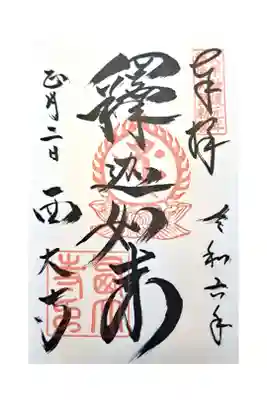 奉拝
令和六年
釋迦如来
正月二日
西大寺